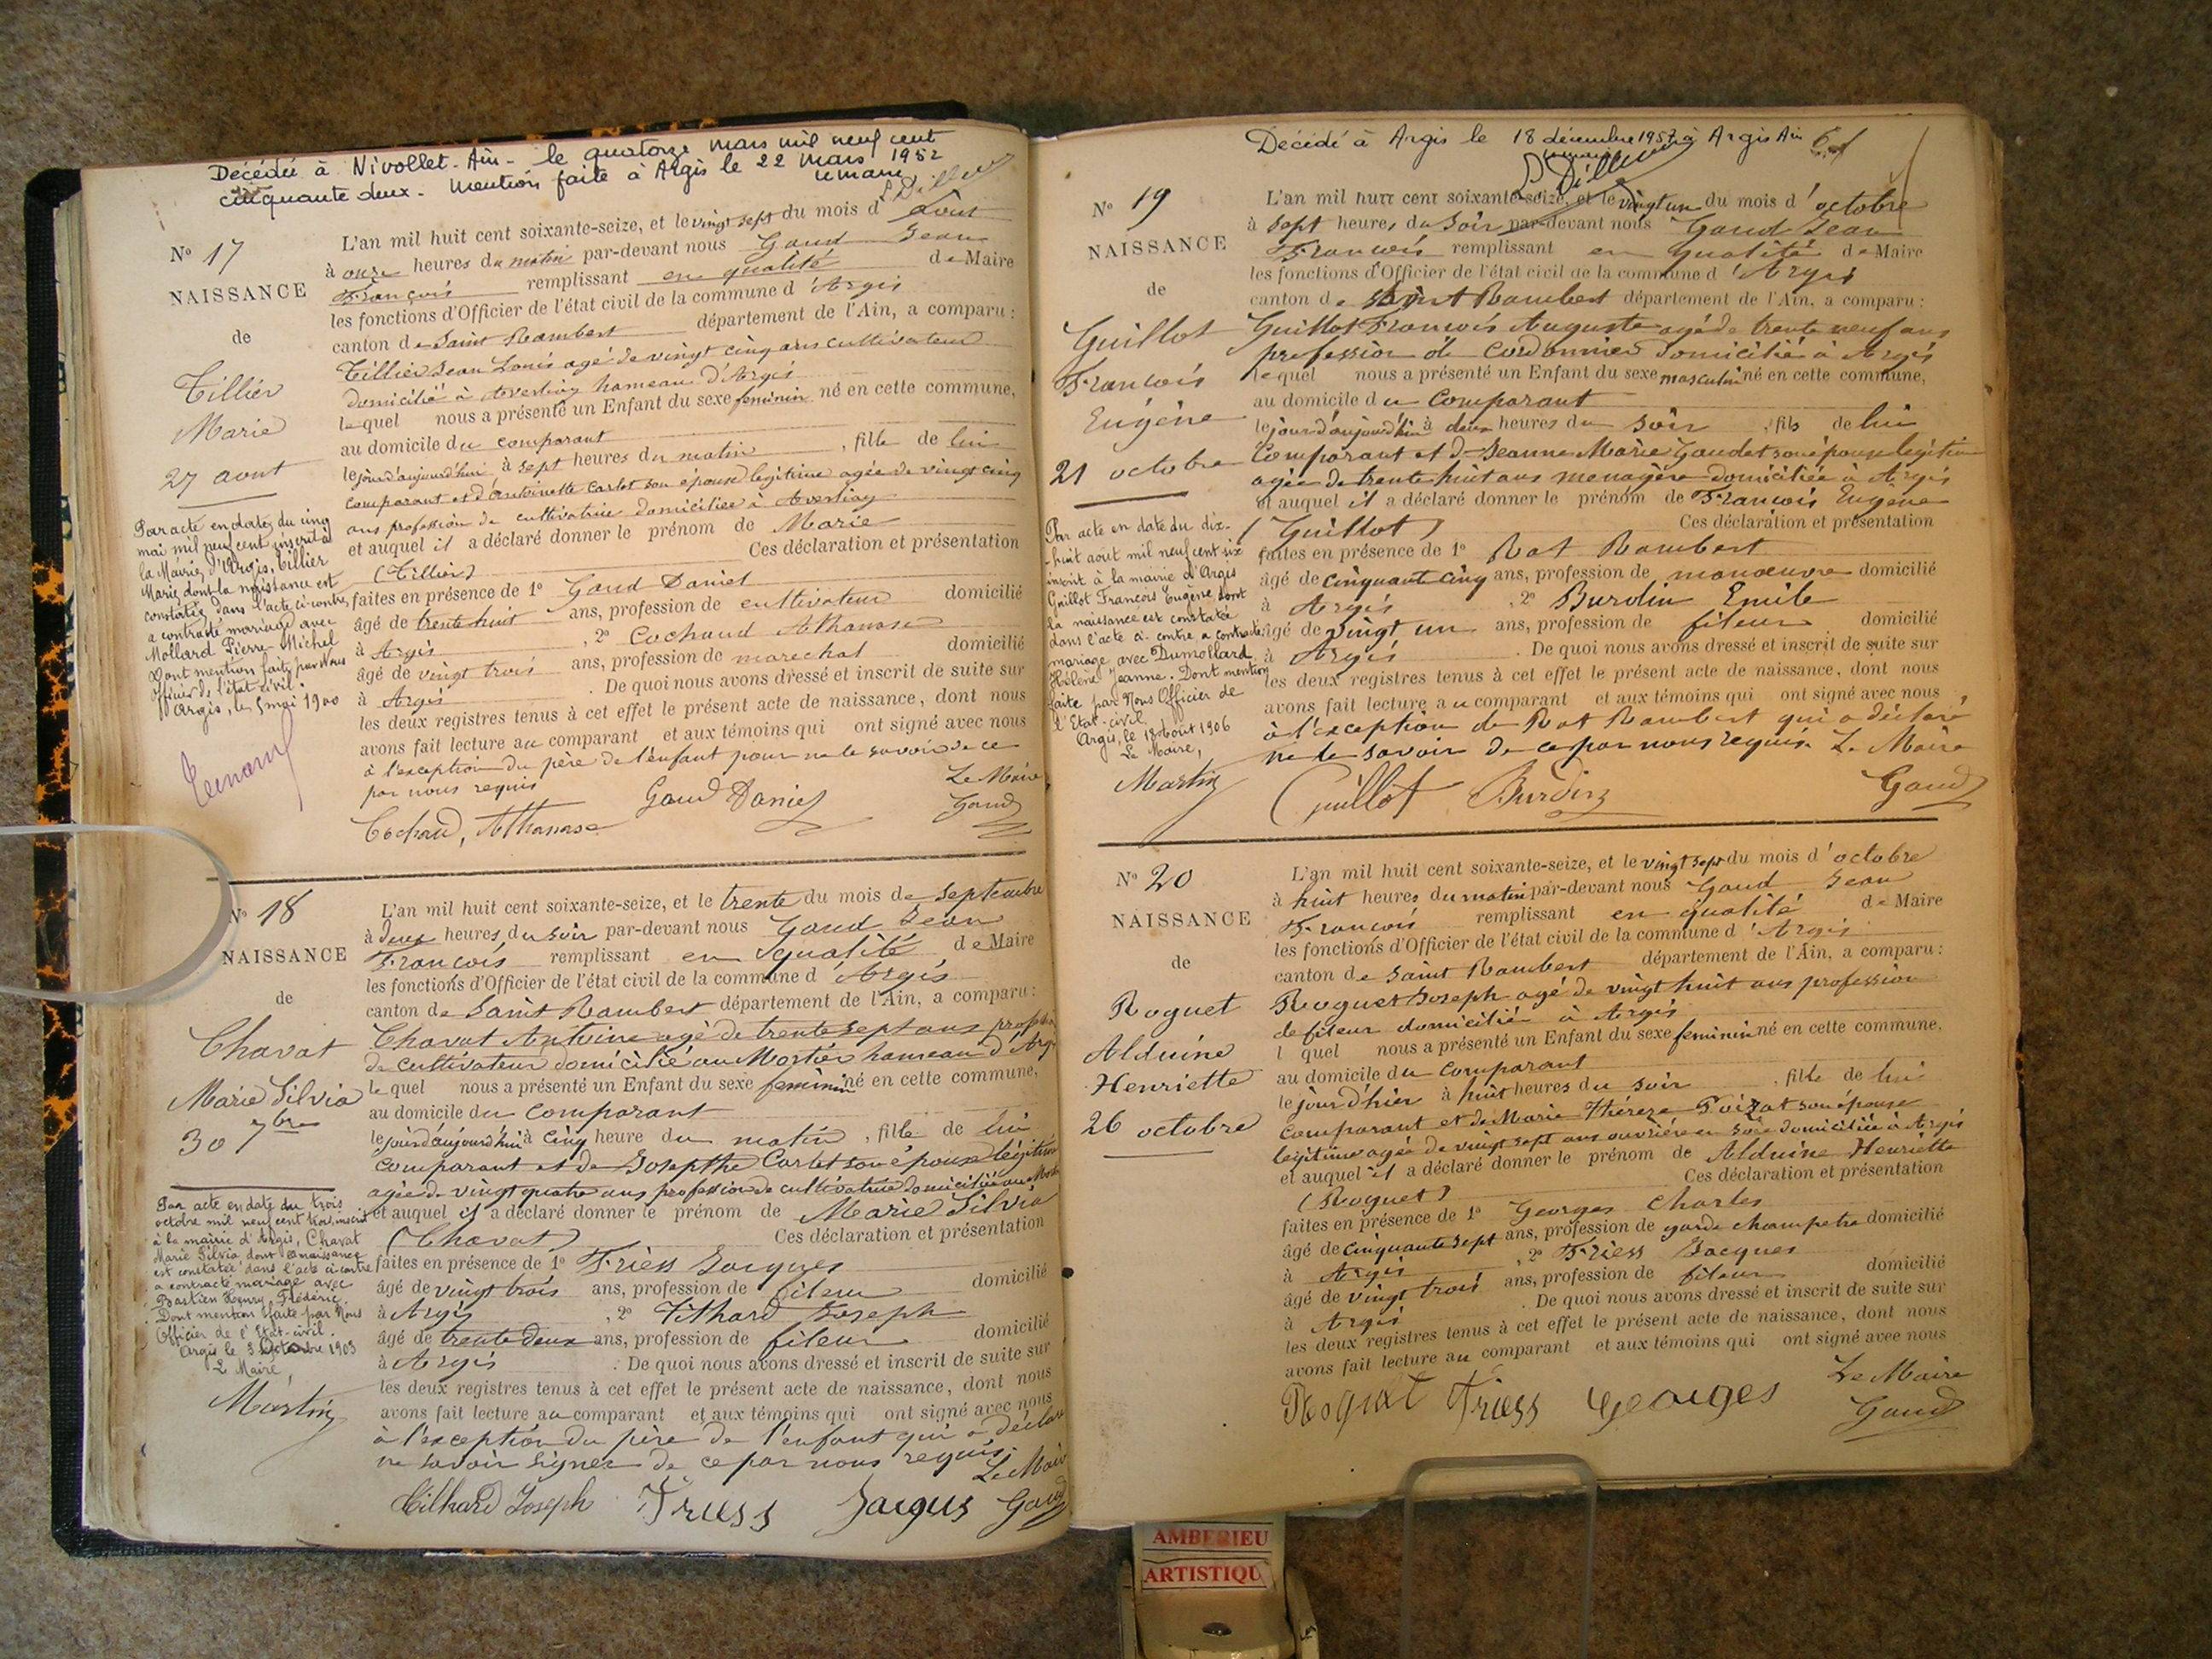 Décédée à Nivollet-Ain- le quatorze mars mil neuf cent
cinquante deux. Mention faite à Argis le 22 mars 1952
N° 17
NAISSANCE
de
Tillier
Marie
27 aout
L'an mil huit cent soixante-seize, et le vingt sept du mois d' Aout
à onze heures du matin par-devant nous Gaud Jean
François remplissant en qualité de Maire
les fonctions d'Officier de l'état civil de la commune d' Argis
canton de Saint Rambert département de l'Ain, a comparu :
Tillier Jean Louis agé de vingt cinq ans cultivateur
domicilié à Averliaz hameau d'Argis
lequel nous a présenté un Enfant du sexe feminin né en cette commune,
au domicile du comparant
le jour d'aujourd'hui à sept heures du matin , fille de lui
comparant et d'Antoinette Carlet son épouse legitime agée de vingt cinq
ans profession de cultivatrice domiciliée à Averliaz
et auquel il a déclaré donner le prénom de Marie
(Tillier) Ces déclaration et présentation
faites en présence de 1° Gaud Daniel
âgé de trente huit ans, profession de cultivateur domicilié
à Argis , 2° Cochaud Athanase
âgé de vingt trois ans, profession de marechal domicilié
à Argis . De quoi nous avons dressé et inscrit de suite sur
les deux registres tenus à cet effet le présent acte de naissance, dont nous
avons fait lecture au comparant et aux témoins qui ont signé avec nous
à l'exception du père de l'enfant pour ne le savoir de ce
par nous requis Le Maire
Cochaud, Athanase Gaud Daniel Gaud
Par acte en date du cinq
mai mil neuf cent inscrit à
la Mairie d'Argis, Tillier
Marie dont la naissance est
constatée dans l'acte ci-contre
a contracté mariage avec
Mollard Pierre-Michel
Dont mention faite par Nous
Officier de l'état civil.
Argis, le 5 mai 1900
N° 18
NAISSANCE
de
Chavat
Marie Silvia
30 7bre
L'an mil huit cent soixante-seize, et le trente du mois de Septembre
à deux heures du soir par-devant nous Gaud Jean
François remplissant en qualité de Maire
les fonctions d'Officier de l'état civil de la commune d' Argis
canton de Saint Rambert département de l'Ain, a comparu :
Chavat Antoine agé de trente sept ans profession
de cultivateur domicilié au Mortier hameau d'Argis
lequel nous a présenté un Enfant du sexe feminin né en cette commune,
au domicile du comparant
le jour d'aujourd'hui à cinq heure du matin , fille de lui
comparant et de Josepthe Carlet son épouse légitime
agée de vingt quatre ans profession de cultivatrice domiciliée au
et auquel il a déclaré donner le prénom de Marie Silvia
(Chavat) Ces déclaration et présentation
faites en présence de 1° Friess Jacques
âgé de vingt trois ans, profession de fileur domicilié
à Argis , 2° Tilhard Joseph
âgé de trente deux ans, profession de fileur domicilié
à Argis . De quoi nous avons dressé et inscrit de suite sur
les deux registres tenus à cet effet le présent acte de naissance, dont nous
avons fait lecture au comparant et aux témoins qui ont signé avec nous
à l'exception du père de l'enfant qui a déclaré
ne savoir signer de ce par nous requis. Le Maire
Tilhard Joseph Friess Jacques Gaud
Par acte en date du trois
octobre mil neuf cent trois, inscrit
à la mairie d'Argis, Chavat
Marie Silvia dont la naissance
est constatée dans l'acte ci-contre
a contracté mariage avec
Bastien Henry Frédéric.
Dont mention faite par Nous
Officier de l'Etat-civil.
Argis le 3 Octobre 1903
Le Maire,
Martin
Décédé à Argis le 18 décembre 1957 à Argis Ain
N° 19
NAISSANCE
de
Guillot
François
Eugène
21 octobre
L'an mil huit cent soixante-seize, et le vingt un du mois d' octobre
à sept heures du soir par-devant nous Gaud Jean
François remplissant en qualité de Maire
les fonctions d'Officier de l'état civil de la commune d' Argis
canton de Saint Rambert département de l'Ain, a comparu :
Guillot François Auguste agé de trente neuf ans
profession de cordonnier domicilié à Argis
lequel nous a présenté un Enfant du sexe masculin né en cette commune,
au domicile du comparant
le jour d'aujourd'hui à deux heures du soir , fils de lui
comparant et de Jeanne Marie Gaudet son épouse legitime
agée de trente huit ans menagère domiciliée à Argis
et auquel il a déclaré donner le prénom de François Eugène
(Guillot) Ces déclaration et présentation
faites en présence de 1° Rat Rambert
âgé de cinquante cinq ans, profession de manoeuvre domicilié
à Argis , 2° Burdin Emile
âgé de vingt un ans, profession de fileur domicilié
à Argis . De quoi nous avons dressé et inscrit de suite sur
les deux registres tenus à cet effet le présent acte de naissance, dont nous
avons fait lecture au comparant et aux témoins qui ont signé avec nous
à l'exception de Rat Rambert qui a déclaré
ne le savoir de ce par nous requis. Le Maire
Guillot Burdin Gaud
Par acte en date du dix-
-huit aout mil neuf cent six
inscrit à la mairie d'Argis
Guillot François Eugène dont
la naissance est constatée
dans l'acte ci-contre a contracté
mariage avec Dumollard
Hélène Jeanne. Dont mention
faite par Nous Officier de
l'Etat-civil
Argis, le 18 Aout 1906
Le Maire,
Martin
N° 20
NAISSANCE
de
Roguet
Alduine
Henriette
26 octobre
L'an mil huit cent soixante-seize, et le vingt sept du mois d' octobre
à huit heures du matin par-devant nous Gaud Jean
François remplissant en qualité de Maire
les fonctions d'Officier de l'état civil de la commune d' Argis
canton de Saint Rambert département de l'Ain, a comparu :
Roguet Joseph agé de vingt huit ans profession
de fileur domicilié à Argis
l quel nous a présenté un Enfant du sexe feminin né en cette commune,
au domicile du comparant
le jour d'hier à huit heures du soir , fille de lui
comparant et de Marie Thérèze Poizat son épouse
legitime agée de vingt sept ans ouvrière en soie domiciliée à Argis
et auquel il a déclaré donner le prénom de Alduine Henriette
(Roguet) Ces déclaration et présentation
faites en présence de 1° Georges Charles
âgé de cinquante sept ans, profession de garde champetre domicilié
à Argis , 2° Friess Jacques
âgé de vingt trois ans, profession de fileur domicilié
à Argis . De quoi nous avons dressé et inscrit de suite sur
les deux registres tenus à cet effet le présent acte de naissance, dont nous
avons fait lecture au comparant et aux témoins qui ont signé avec nous
Le Maire
Roguet Friess Georges Gaud
AMBERIEU
ARTISTIQU